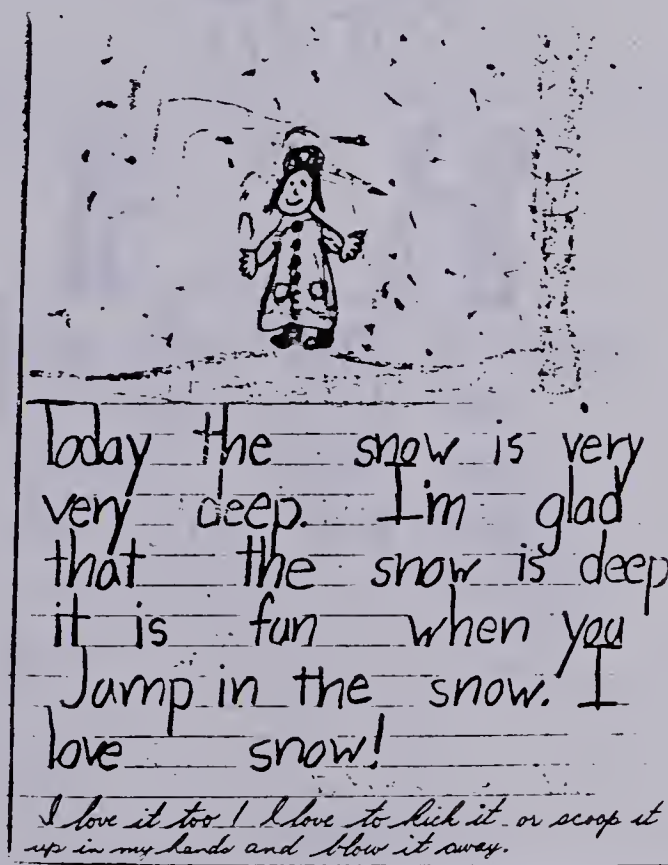 Today the snow is very
very deep. I'm glad
that the snow is deep
it is fun when you
Jump in the snow. I
love snow!
I love it too! I love to kick it or scoop it
up in my hands and blow it away.